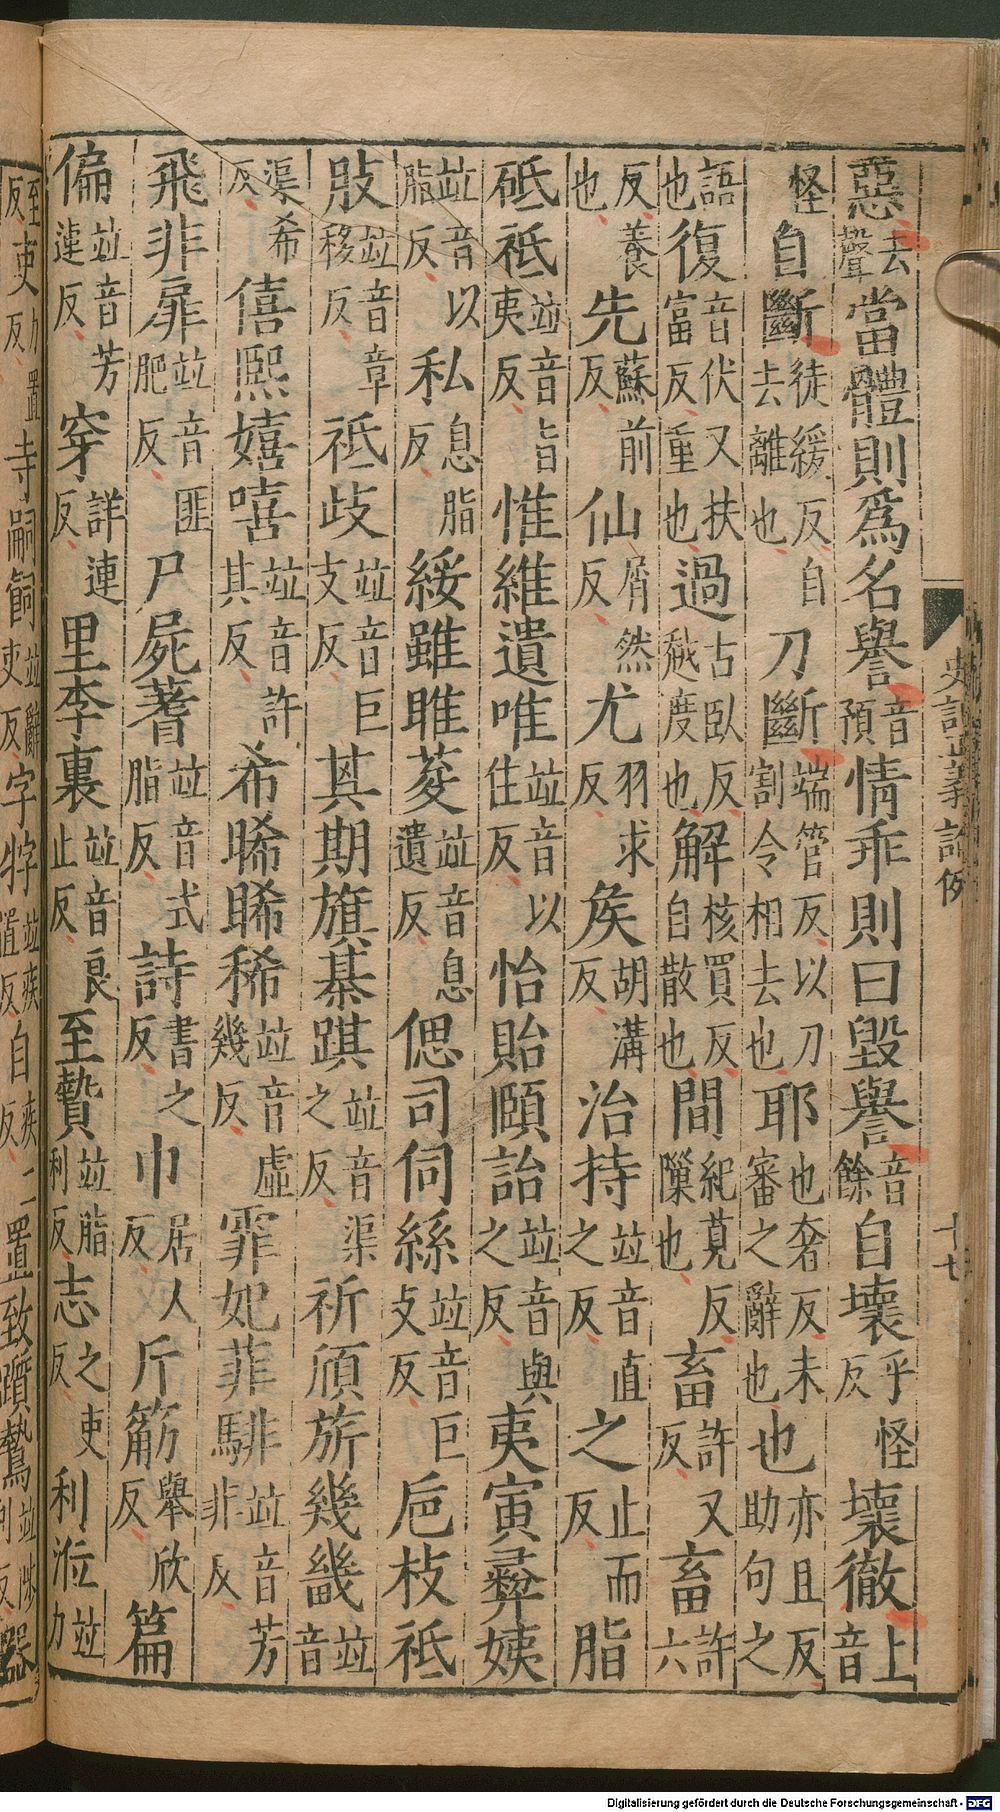 惡去聲當體則爲名譽音預情乖則曰毀譽音餘自壞乎怪反壞徹上音
怪自斷徒緩反自去離也刀斷端管反以刀割令相去也耶也奢反未審之辭也也亦且反助句之
語也復音伏又扶富反重也過古臥反越度也解核買反自散也間紀莧反隟也畜許又反畜許六
反養也先蘇前反仙屑然反尤羽求反矦胡溝反治持竝音直之反之止而反脂
砥祗竝音旨夷反惟維遺唯竝音以住反怡貽頤詒竝音與之反夷寅彛姨
竝音以脂反私息脂反綏雖睢荽竝音息遺反偲司伺絲竝音巨攴反巵枝祗
肢竝音章移反祇歧竝音巨支反其期旗綦踑竝音渠之反祈頎旂幾畿竝音
渠希反僖熙嬉嘻竝音許其反希晞睎稀竝音虛幾反霏妃菲騑竝音芳非反
飛非扉竝音匪肥反尸屍蓍竝音式脂反詩書之反巾居人反斤筋舉欣反篇
偏竝音芳連反穿詳連反里李裏竝音良止反至贄竝脂利反志之吏反利涖竝力
史記正義論例
十七
Digitalisierung gefördert durch die Deutsche Forschungsgemeinschaft - DFG